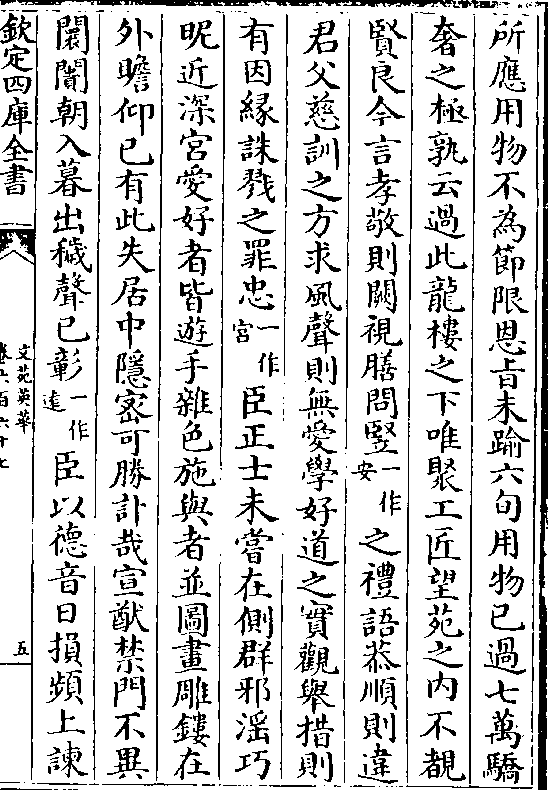 所應用物不為節限恩旨未踰六旬用物已過七萬驕
奢之極孰云過此龍樓之下唯聚工匠望苑之内不覩
賢良今言孝敬則闕視膳問竪一作安之禮語恭順則違
君父慈訓之方求風聲則無愛學好道之實觀舉措則
有因緣誅戮之罪忠一作宮臣正士未嘗在側群邪滛巧
昵近深宫愛好者皆遊手雜色施與者並圖畫雕鏤在
外瞻仰已有此失居中隱宻可勝計哉宣猷禁門不異
闤闠朝入暮出穢聲已彰一作逺臣以徳音日損頻上諫
欽定四庫全書
文苑英華
卷六百六十七
五